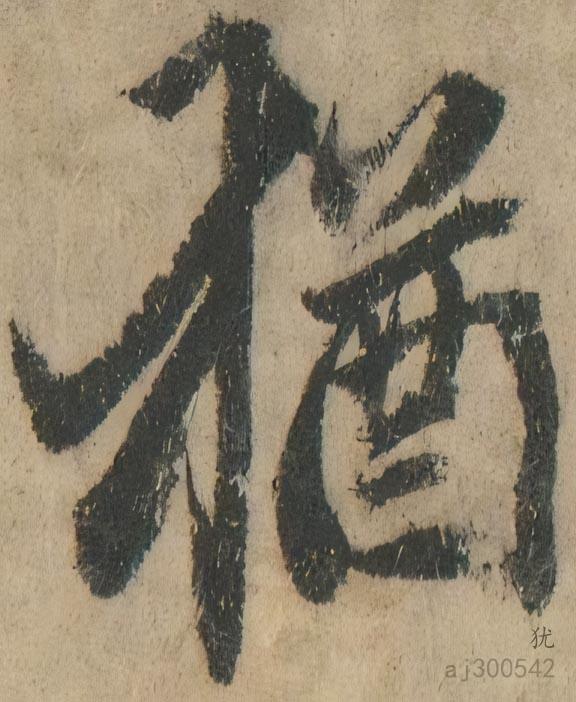 猶
犹
aj300542